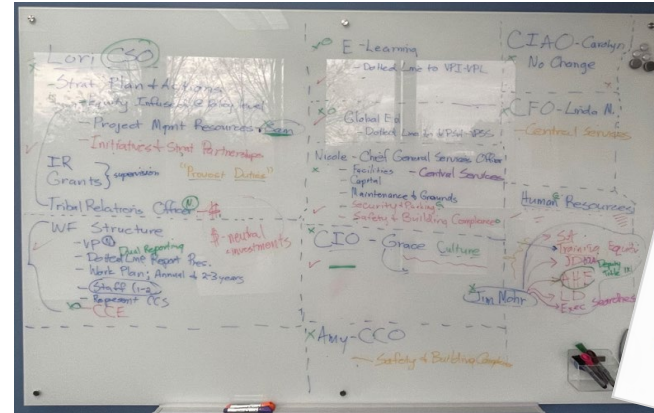 Lori CSO
- Strat Plan & Actions
- Equity Infusion @ Every level
- Project Mgmt Resources
- Initiatives & Strat Partnerships
IR
Grants } supervision
"Provost Duties"
Tribal Relations Officer
WF Structure
- VP
Dual Reporting
- Dotted Line Report Pres.
- Work Plan; Annual & 2-3 years
- Staff (1-2)
- Represent CCs
- CCE
$-neutral
investments
E-Learning
- Dotted Line to VPI-VPL
Global Ed
- Dotted Line
Nicole - Chief General Services Officer
- Facilities
- Central Services
Capital
Maintenance & Grounds
- Security
- Safety & Building Compliance
CIO - Grace
Culture
Amy - CCO
- Safety & Building Compliance
CIAO - Carolyn
No Change
CFO - Linda M.
- Central Services
Human Resources
Training
Deputy
Title IX
LD
Exec Searches
Jim Mohr